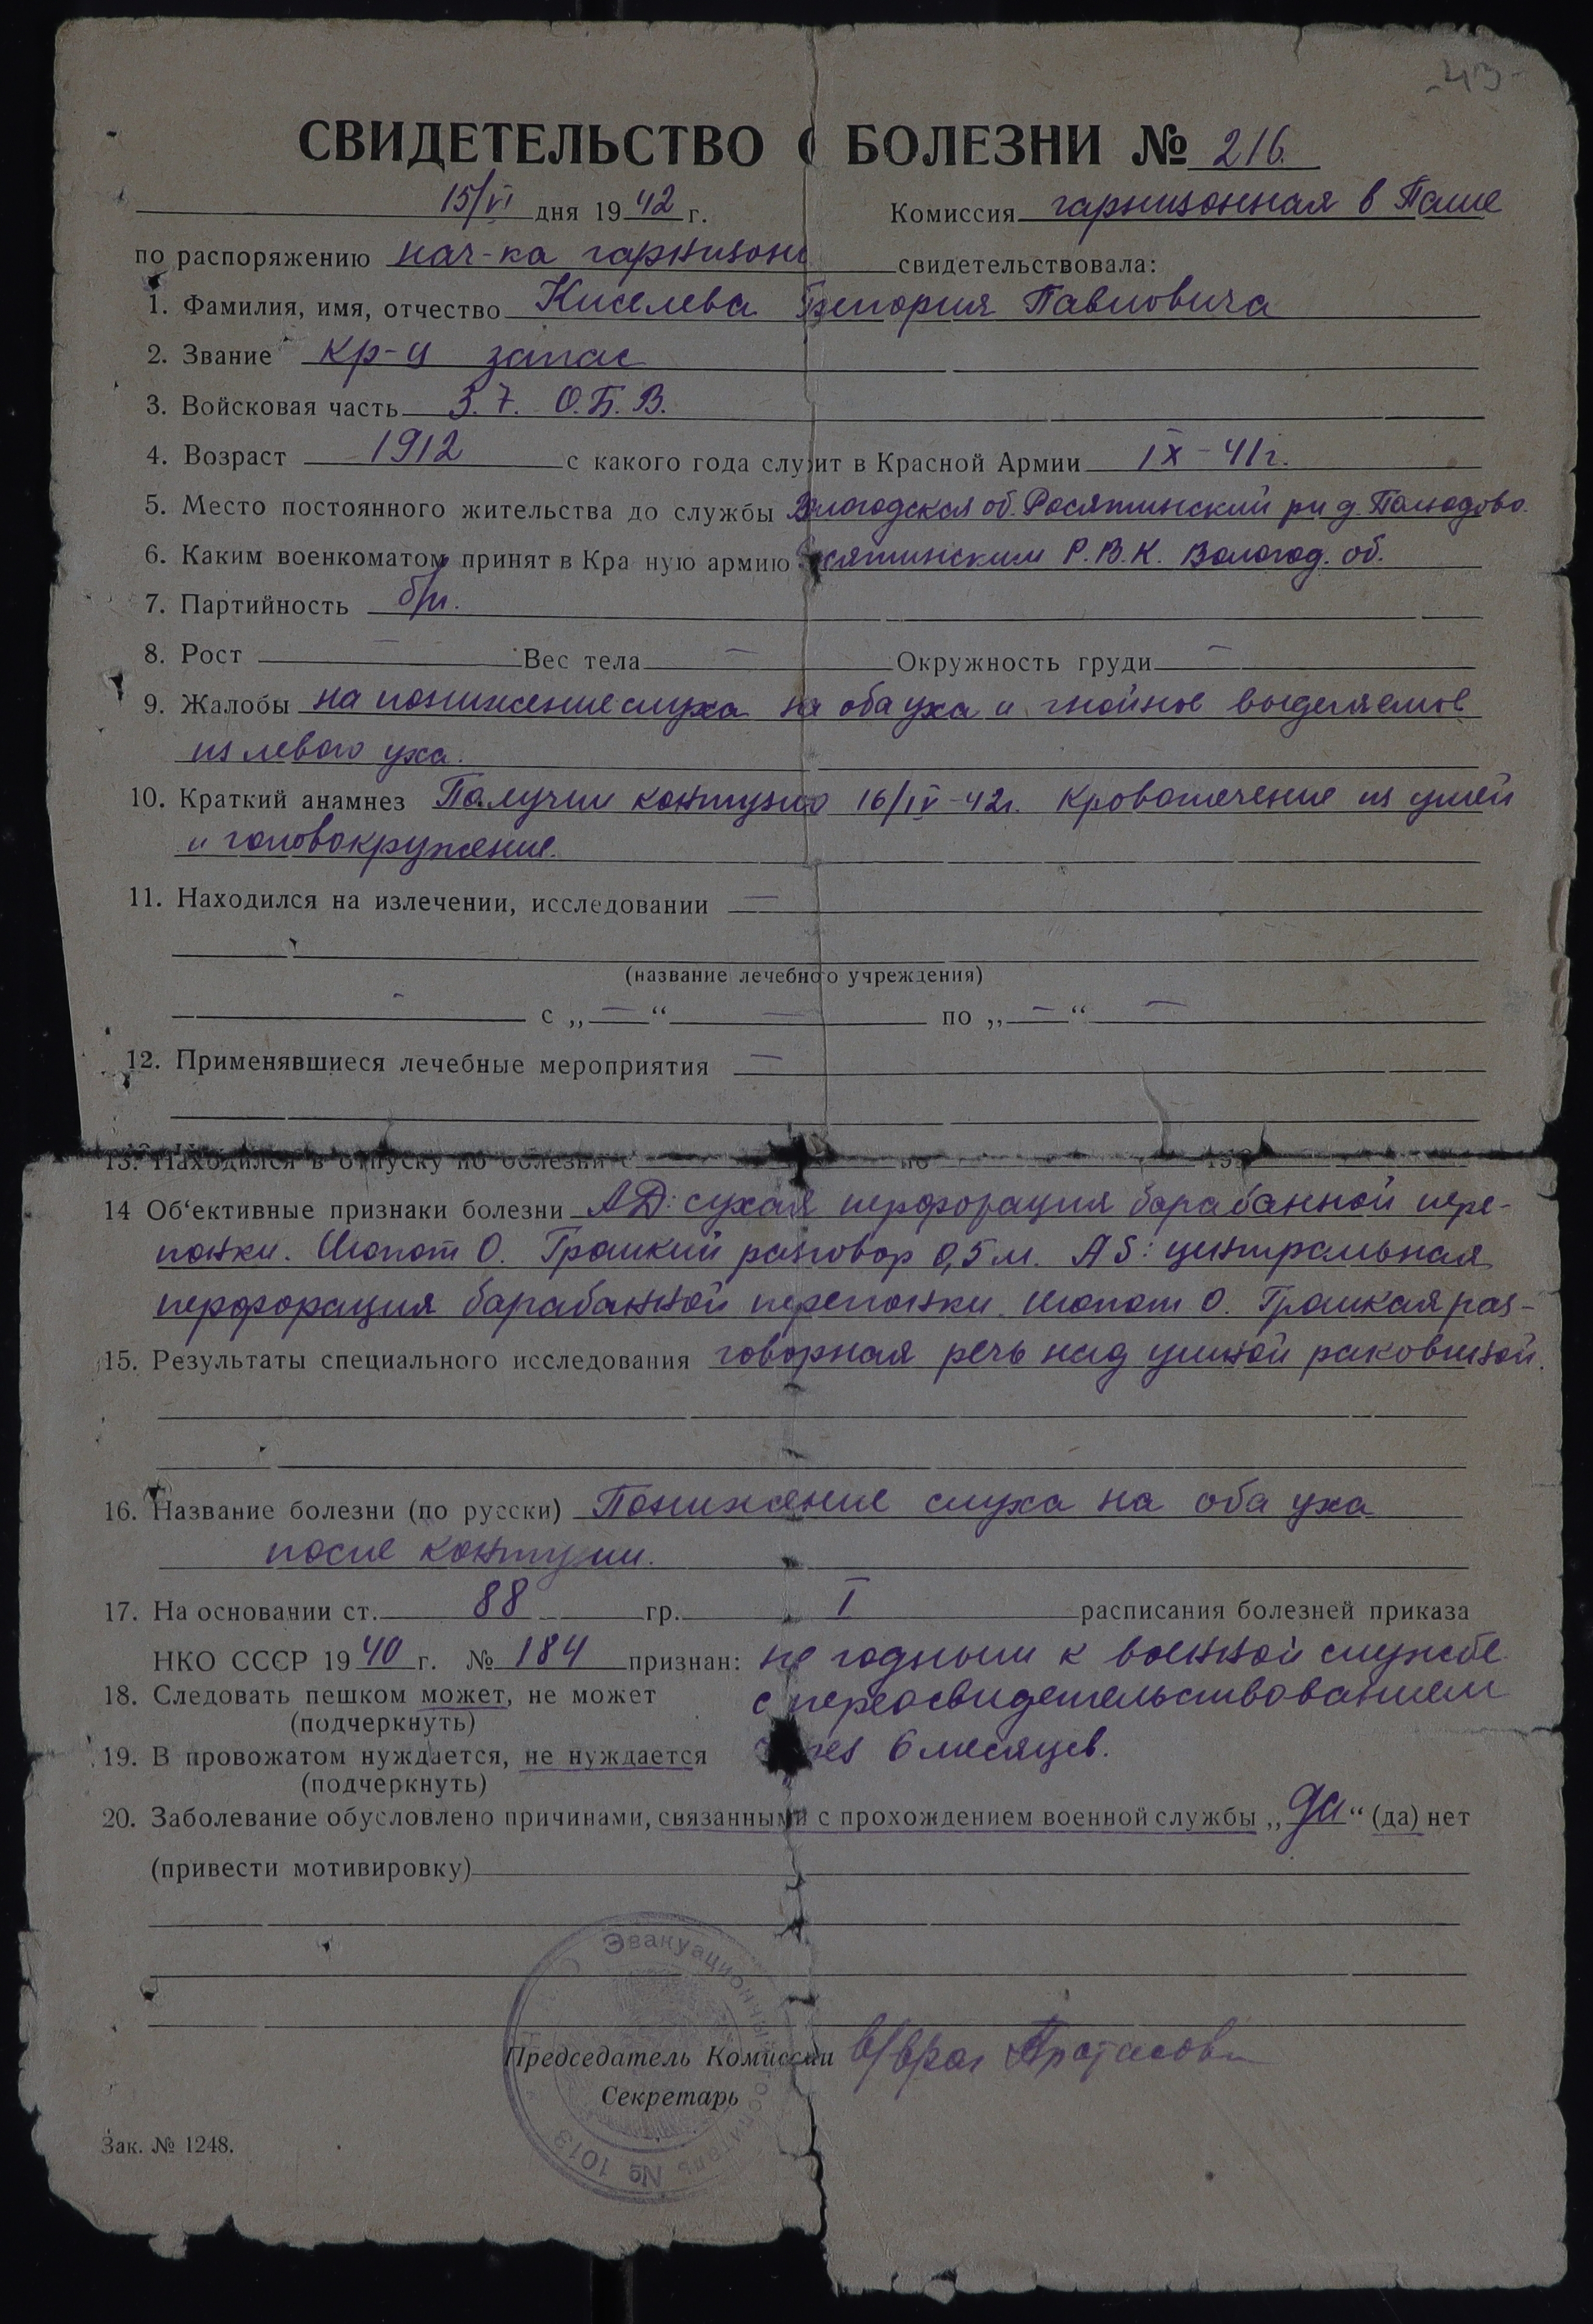 -43-
СВИДЕТЕЛЬСТВО О БОЛЕЗНИ № 216.
15/VI дня 1942 г. Комиссия гарнизонная в Паше
по распоряжению нач-ка гарнизона свидетельствовала:
1. Фамилия, имя, отчество Киселева Григория Павловича
2. Звание кр-ц запас
3. Войсковая часть 3.7. О.Б.В.
4. Возраст 1912 с какого года служит в Красной Армии IX-41г.
5. Место постоянного жительства до службы Вологодская об. Рослятинский р-н д.
6. Каким военкоматом принят в Красную армию Рослятинским Р.В.К. Вологод. об.
7. Партийность б/п.
8. Рост — Вес тела — Окружность груди —
9. Жалобы на понижение слуха на оба уха и гнойное выделяемое
из левого уха.
10. Краткий анамнез Получил контузию 16/IV-42г. Кровотечение из ушей
и головокружение.
11. Находился на излечении, исследовании —
(название лечебного учреждения)
- с „—“ — по „—“ —
12. Применявшиеся лечебные мероприятия —
13. Находился в отпуску по болезни с по 193
14 Об'ективные признаки болезни АД: сухая перфорация барабанной пере-
понки. Шопот 0. Громкий разговор 0,5 м. AS: центральная
перфорация барабанной перепонки. Шопот 0. Громкая раз-
15. Результаты специального исследования говорная речь над ушной раковиной.
16. Название болезни (по русски) Понижение слуха на оба уха
после контузии.
17. На основании ст. 88 гр. I расписания болезней приказа
НКО СССР 1940 г. № 184 признан: не годным к военной службе
18. Следовать пешком может, не может с переосвидетельствованием
(подчеркнуть)
19. В провожатом нуждается, не нуждается через 6 месяцев.
(подчеркнуть)
20. Заболевание обусловлено причинами, связанными с прохождением военной службы „да“ (да) нет
(привести мотивировку)
Эвакуационный госпиталь № 1013
Председатель Комиссии в/врач Протасов
Секретарь
Зак. № 1248.